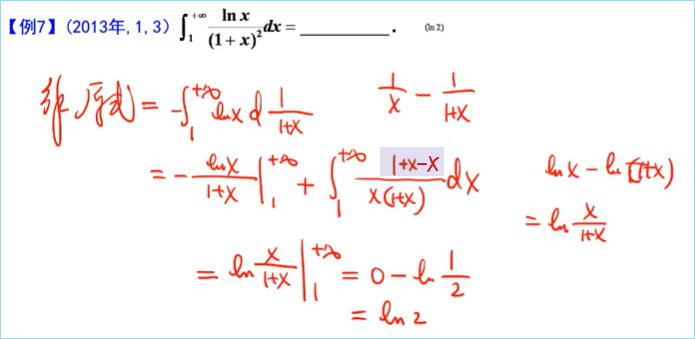 【例7】(2013年, 1, 3) ∫₁^{+∞} ln x / (1 + x)² dx = ________. (ln 2)
解 原式 = -∫₁^{+∞} ln x d 1/(1+x)    1/x - 1/(1+x)
= - ln x/(1+x) |₁^{+∞} + ∫₁^{+∞} (1+x-x)/(x(1+x)) dx    ln x - ln (1+x)
= ln x/(1+x)
= ln x/(1+x) |₁^{+∞} = 0 - ln 1/2
= ln 2